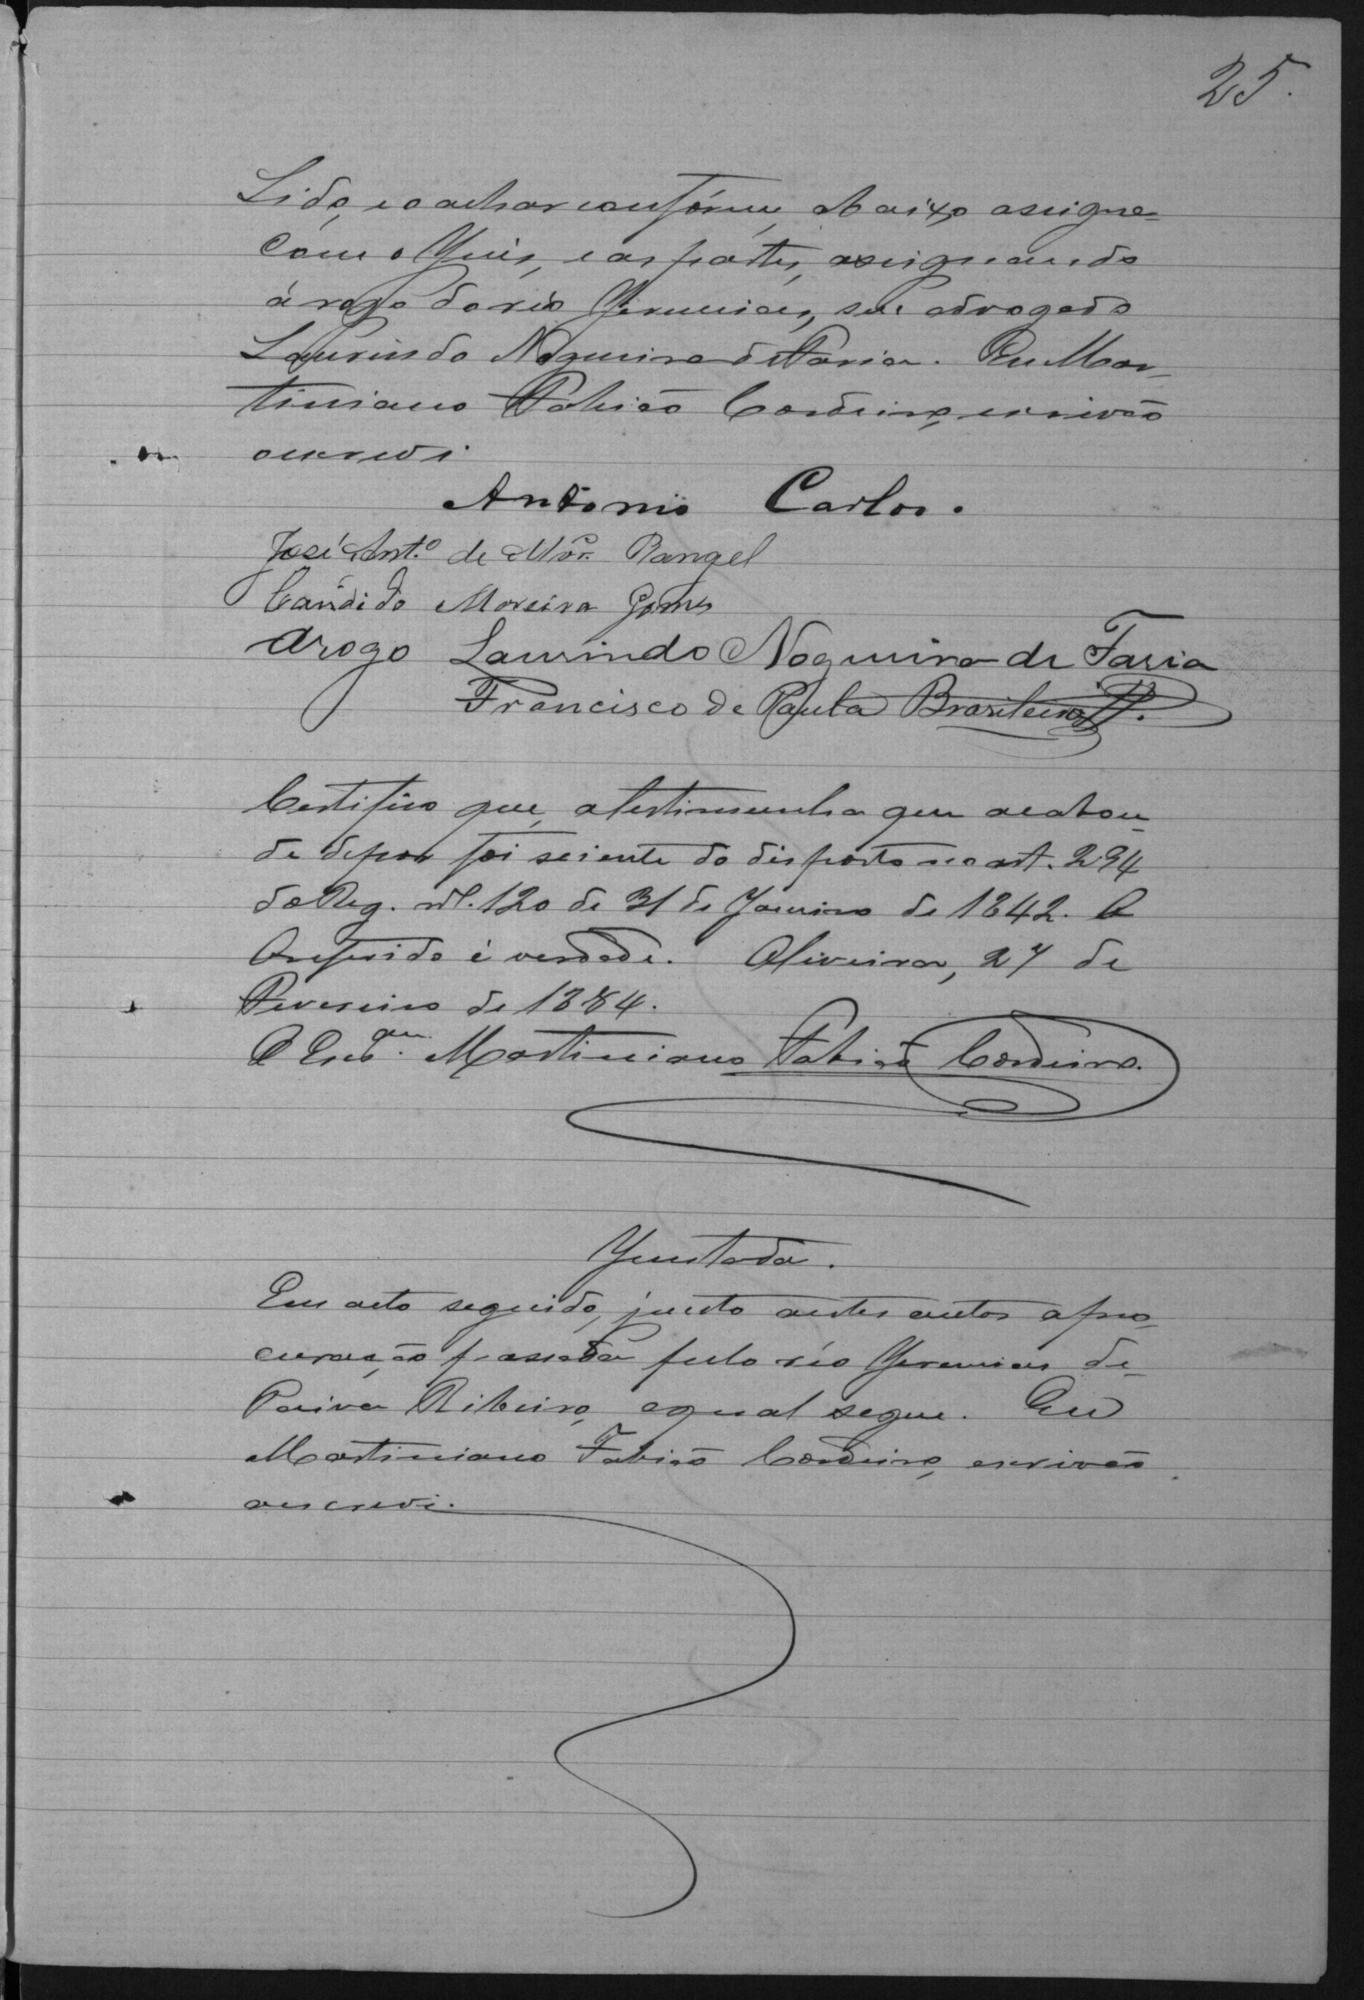 25.
Lido, e o achar conforme, abaixo assigna
com o Juis, e as partes, assignando
á rogo do réo Jeremias, seu advogado
Laurindo Nogueira de Faria. Eu Mar-
tiniano Fabião Cordeiro, escrivão
o escrevi
Antonio Carlos.
José Ant.º de Mor.ª Rangel
Candido Moreira Gomes
Arogo Laurindo Nogueira de Faria
Francisco de Paula Brasileiro
Certifico que, a testimunha que acabou
de depor foi sciente do disposto no art. 294
do Reg. nº. 120 de 31 de Janeiro de 1842. O
referido é verdade. Oliveira, 27 de
Fevereiro de 1884.
O Escr.am Martiniano Fabião Cordeiro.
Juntada.
Em acto seguido, junto a estes autos a pro-
curação passada pelo réo Jeremias de
Paiva Ribeiro, a qual segue. Eu
Martiniano Fabião Cordeiro, escrivão
o escrevi.